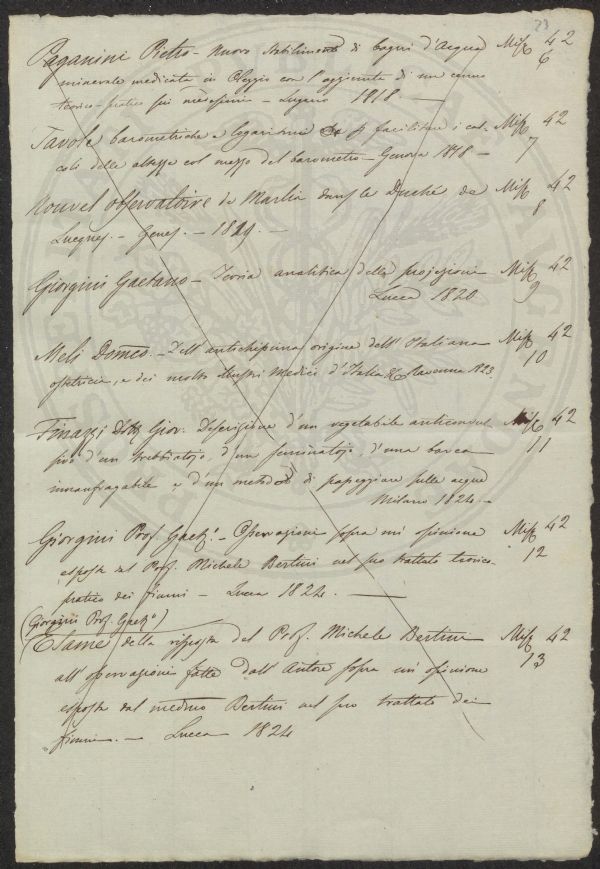 23
Paganini Pietro - Nuovo Stabilimento di bagni d'Acqua Misc. 42
minerale medicata in Oleggio con l'aggiunta di un cenno 6
teorico-pratico sui - Lugano 1818. -
Tavole barometriche e logaritmi p. facilitare i cal- Misc. 42
coli delle altezze col mezzo del barometro - Genova 1818 - 7
Nouvel observatoire de Marlia dans le Duché de Misc. 42
Lucques. - Genes. - 1819. - 8
Giorgini Gaetano - Teoria analitica della projezioni Misc. 42
Lucca 1820. 9
Meli Domco. - Dell'antichissima origine dell'Italiana Misc. 42
ostetricia, e dei molto illustri Medici d'Italia &c. Ravenna 1823. 10
Finazzi Dottr. Giov. Descrizione d'un vegetabile anticonvul Misc. 42
sivo d'un trebbiatojo, d'un seminatojo, d'una barca 11
innaufragabile e d'un metodo di passeggiare sulle acque
Milano 1824. -
Giorgini Prof. Gaeto. - Osservazioni sopra un'opinione Misc. 42
esposta dal Prof. Michele Bertini nel suo trattato teorico- 12
pratico dei fiumi - Lucca 1824. -
(Giorgini Prof. Gaeto.)
Esame della risposta del Prof. Michele Bertini Misc. 42
all'osservazioni fatte dall'Autore sopra un'opinione 13
esposta dal medmo Bertini nel suo trattato dei
fiumi. - Lucca 1824